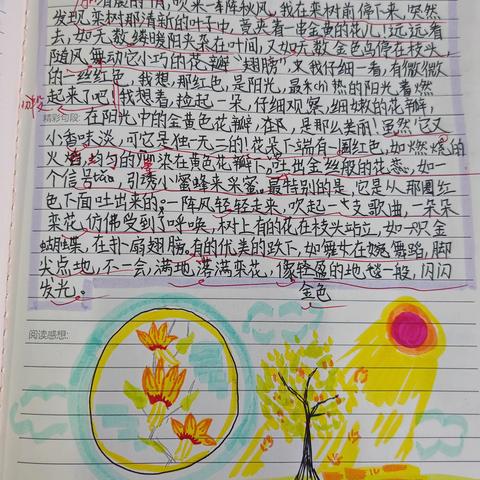 情，吹来一阵秋风，我在栾树前停下来，突然
发现，栾树那清新的叶子中，竟夹着一串金黄的花儿！远远看
去，如无数缕暖阳夹杂在叶间，又如无数金色鸟停在枝头，
随风舞动它小巧的花瓣“翅膀”，我仔细一看，有微微
的一丝红色，我想，那红色，是阳光，最炽chì热的阳光着燃
起来了吧！我想着，捡起一朵，仔细观察，细嫩的花瓣，
精彩句段：在阳光中的金黄色花瓣，是那么美丽！虽然它又
小香味淡，可它是独一无二的！花朵下端有一圈红色，如燃烧的
火焰，均匀的染在黄色花瓣下，吐出金丝般的花蕊，如一
个信号，引诱小蜜蜂来采蜜。最特别的是，它是从那圈红
色下面吐出来的。一阵风轻轻走来，吹起一支歌曲，一朵朵
栾花，仿佛受到了呼唤，树上有的花在枝头站立，如一只金
蝴蝶，在扑扇翅膀，有的优美的跃下，如舞女在婉舞蹈，脚
尖点地，不一会，满地落满栾花，像轻盈的地毯一般，闪闪
发光。
金色
阅读感想：